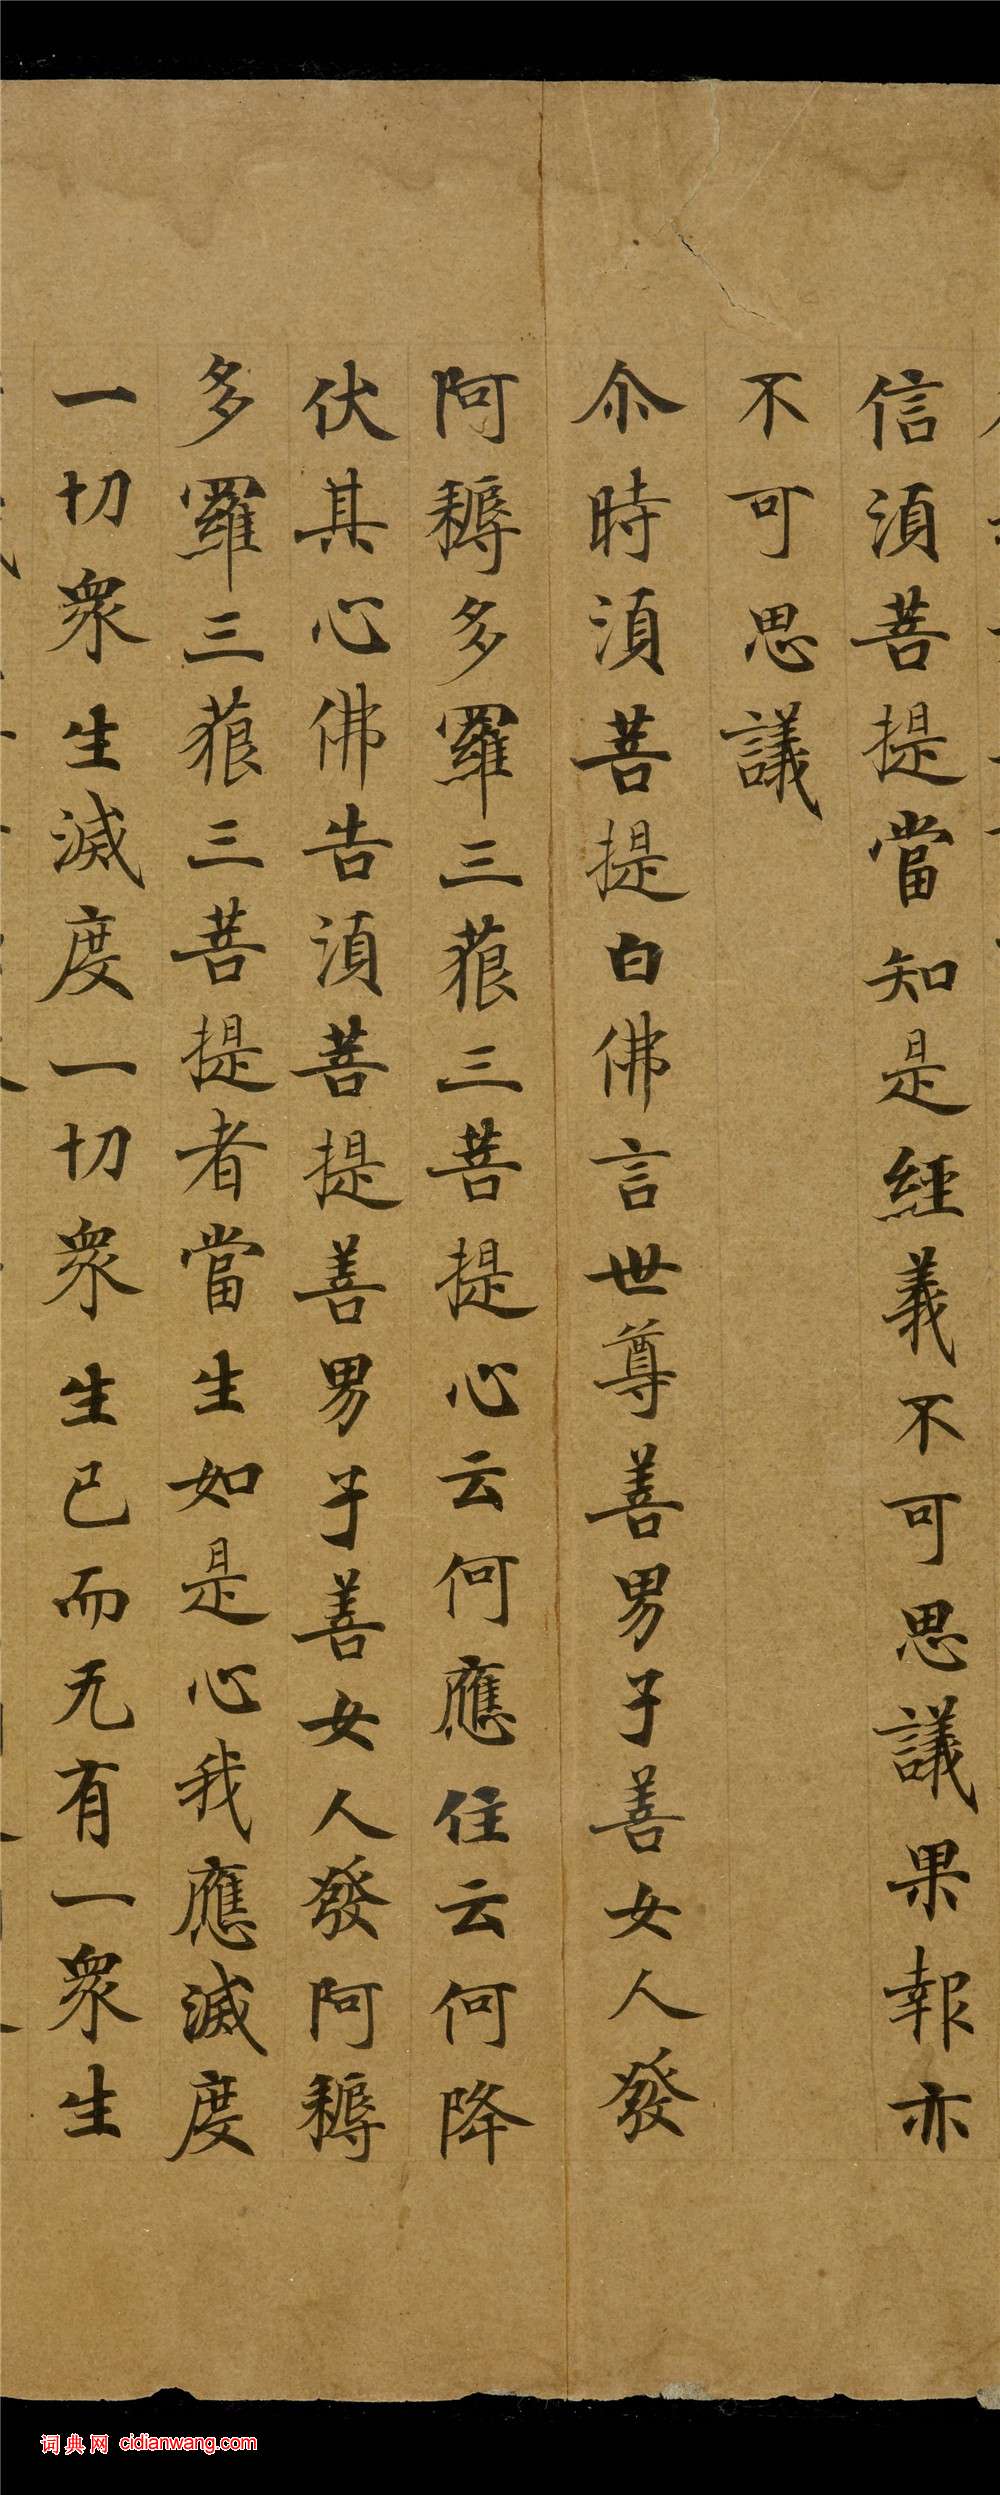 信須菩提當知是經義不可思議果報亦
不可思議
尒時須菩提白佛言世尊善男子善女人發
阿耨多羅三藐三菩提心云何應住云何降
伏其心佛告須菩提善男子善女人發阿耨
多羅三藐三菩提者當生如是心我應滅度
一切衆生滅度一切衆生已而无有一衆生
词典网 cidianwang.com